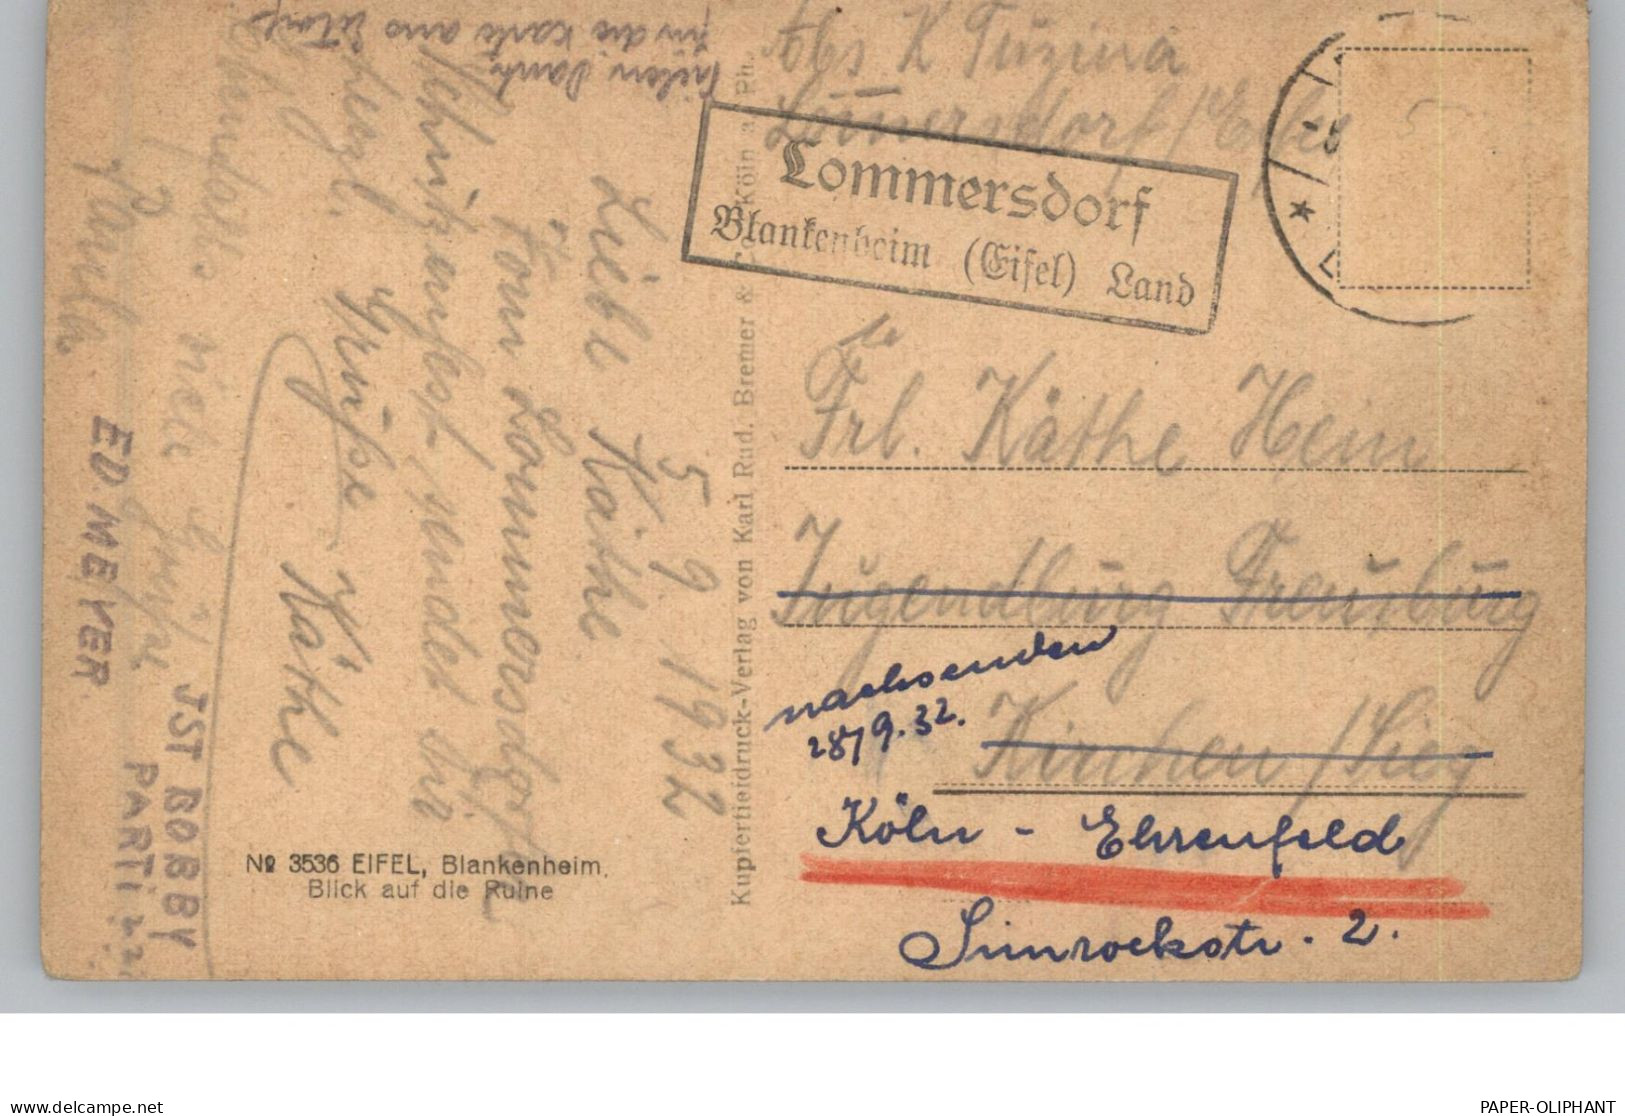 Abs K Tuzina
Lommersdorf / Eifel
Lommersdorf
Blankenheim (Eifel) Land
Frl. Käthe Hein
Jugendburg Freusburg
nachsenden
28/9.32.
Kirchen / Sieg
Köln - Ehrenfeld
Simrockstr. 2.
Kupfertiefdruck-Verlag von Karl Rud. Bremer & Co. Köln a. Rh.
5 9 1932
Liebe Käthe
Vom Lommersdorfer
sendet dir
herzl. Grüße
Käthe
Vielen Dank
für die Karte aus
viele Grüße
ED MEYER
JST BOBBY
PARTI
№ 3536 EIFEL, Blankenheim,
Blick auf die Ruine
www.delcampe.net
PAPER-OLIPHANT